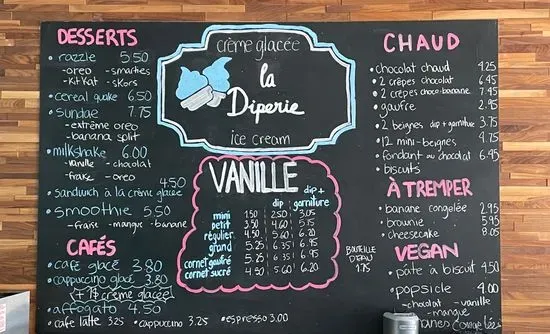 DESSERTS
• razzle 5.50
- oreo - smarties
- kitkat - skors
• cereal quake 6.50
• sundae 7.75
- extrême oreo
- banana split
• milkshake 6.00
- vanille - chocolat
- fraise - oreo
• sandwich à la crème glacée 4.50
• smoothie 5.50
- fraise - mangue - banane
CAFÉS
• café glacé 3.80
• cappuccino glacé 3.80
(+ 1$ crème glacée)
• affogato 4.50
• cafe latte 3.25 • cappuccino 3.25 • espresso 3.00
crème glacée
la
Diperie
ice cream
VANILLE
dip dip + garniture
mini 1.50 2.50 3.05
petit 3.50 4.60 5.75
régulier 4.50 5.60 6.20
grand 5.25 6.35 6.95
cornet gaufré 5.25 6.35 6.95
cornet sucré 4.50 5.60 6.20
BOUTEILLE
D'EAU
1.75
CHAUD
• chocolat chaud 4.25
• 2 crêpes chocolat 6.45
• 2 crêpes choco-banane 7.45
• gaufre 2.95
• 2 beignes dip + garniture 3.75
• 12 mini-beignes 4.75
• fondant au chocolat 6.95
• biscuits
À TREMPER
• banane congelée 2.95
• brownie 5.95
• cheesecake 8.05
VEGAN
• pâte à biscuit 4.50
• popsicle 4.00
- chocolat - vanille
- mangue
congelées